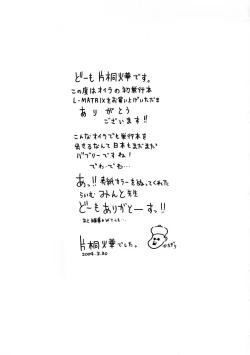 どーも片桐火華です。
この度はオイラの初単行本
L-MATRIXをお買い上げいただき
ありがとう
ございます!!
こんなオイラでも単行本を
出せるなんて日本もまだまだ
バブリーですね!
でわ・でわ…
あっ!!表紙カラーをぬってくれた
らいむみんと先生
どーもありがとーすっ!!
片桐火華でした。
かたぎり
2004.3.30